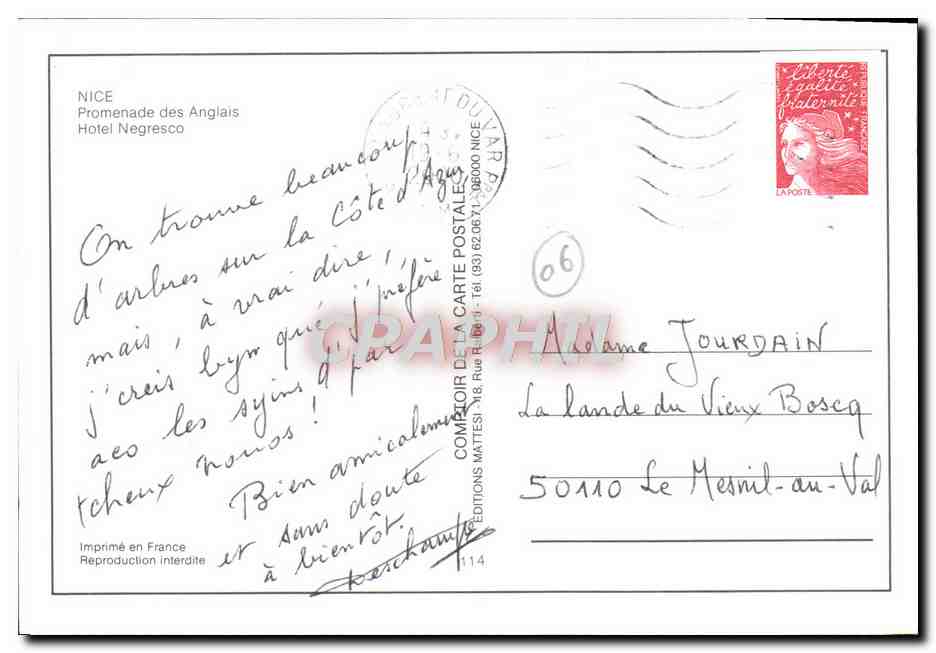 NICE
Promenade des Anglais
Hotel Negresco
On trouve beaucoup
d'arbres sur la Côte d'Azur
mais, à vrai dire,
j'creis byin qué j'préfère
aco les syins d'par
tcheux nouos !
Bien amicalement
et sans doute
à bientôt.
Deschamps
Imprimé en France
Reproduction interdite
114
ÉDITIONS MATTESI - 18, Rue Raiberti - Tél. (93) 62 06 71 - 06000 NICE
COMPTOIR DE LA CARTE POSTALE
CPAPHIL
06
liberté
égalité
fraternité
RÉPUBLIQUE FRANÇAISE
LA POSTE
Madame JOURDAIN
La lande du Vieux Boscq
50110 Le Mesnil-au-Val